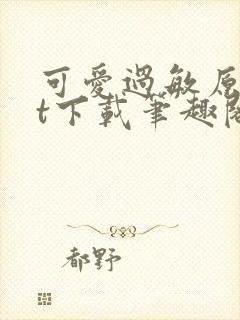 可愛過敏原
t下載筆趣閣
都野